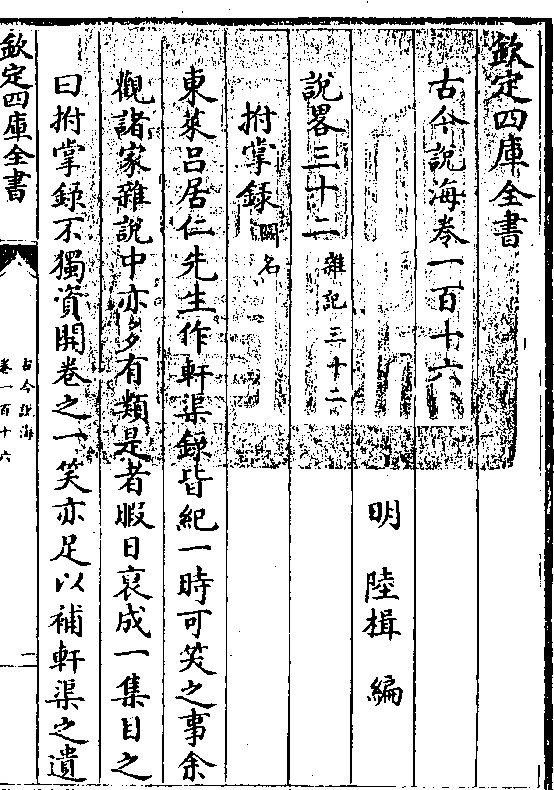 欽定四庫全書
古今說海卷一百十六
明 陸楫 編
說畧三十二 雜記三十二
拊掌録 闕名
東萊呂居仁先生作軒渠録皆紀一時可笑之事余
觀諸家雜說中亦多有類是者暇日裒成一集目之
曰拊掌録不獨資開卷之一笑亦足以補軒渠之遺
欽定四庫全書
古今說海
卷一百十六
二